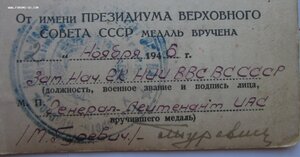 От имени ПРЕЗИДИУМА ВЕРХОВНОГО
СОВЕТА СССР МЕДАЛЬ ВРУЧЕНА
" Ноября 1946 г.
Зам. Нач. НИИ ВВС ВС СССР
(должность, военное звание и подпись лица,
М. П. Генерал-Лейтенант ИАС
вручившего медаль)
/М. Гуревич/